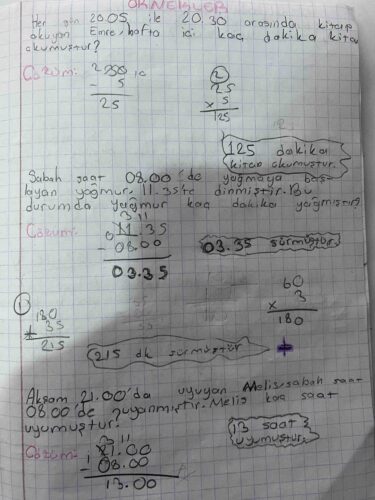 ÖRNEKLER
Her gün 20.05 ile 20.30 arasında kitap
okuyan Emre, hafta içi kaç dakika kitap
okumuştur?
Çözüm:
- 5
25
2
25
x 5
125
125 dakika
kitap okumuştur.
Sabah saat 08.00'de yağmaya baş-
layan yağmur. 11.35'te dinmiştir. Bu
durumda yağmur kaç dakika yağmıştır?
Çözüm:
11.35
- 08.00
03.35
03.35 sürmüştür.
1
180
+ 35
215
60
x 3
180
215 dk sürmüştür
Akşam 21.00'da uyuyan Melis, sabah saat
08.00'de uyanmıştır. Melis kaç saat
uyumuştur.
Çözüm:
21.00
- 08.00
13.00
13 saat
uyumuştur.